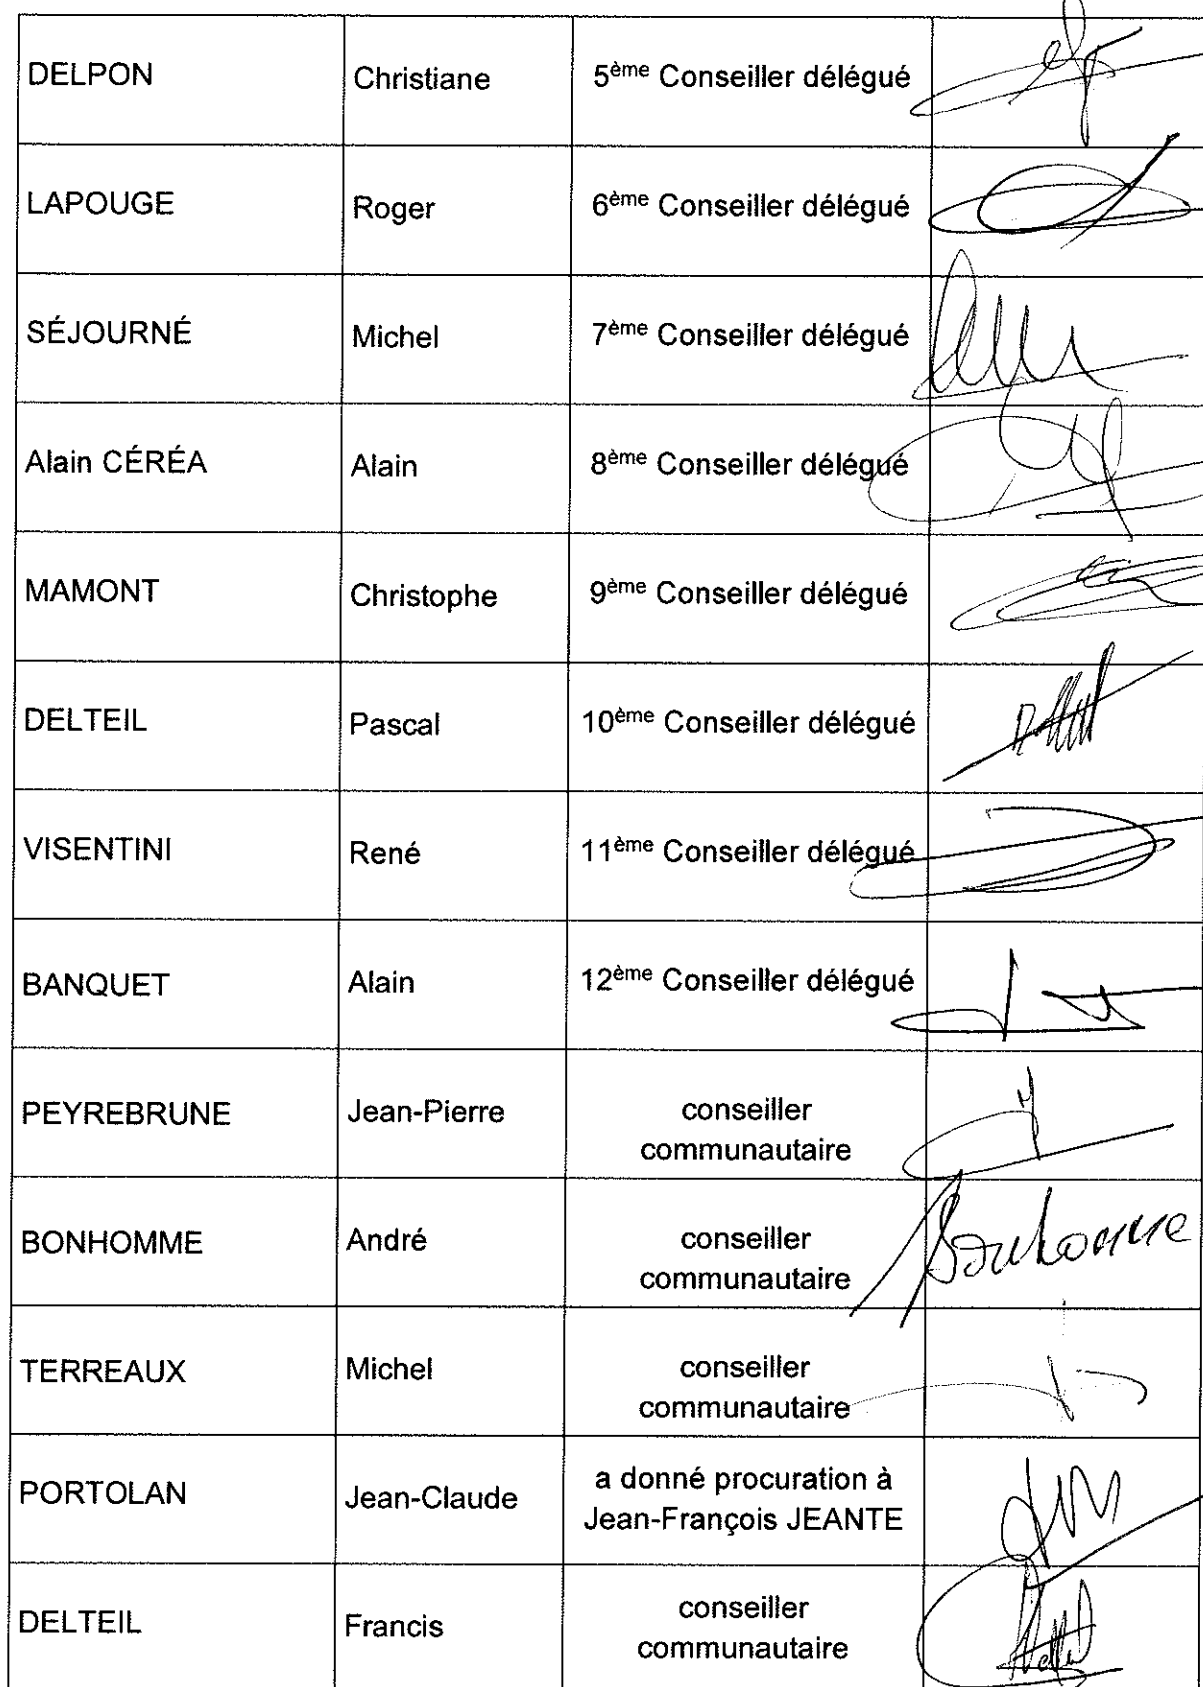 DELPON Christiane 5ème Conseiller délégué
LAPOUGE Roger 6ème Conseiller délégué
SÉJOURNÉ Michel 7ème Conseiller délégué
Alain CÉRÉA Alain 8ème Conseiller délégué
MAMONT Christophe 9ème Conseiller délégué
DELTEIL Pascal 10ème Conseiller délégué
VISENTINI René 11ème Conseiller délégué
BANQUET Alain 12ème Conseiller délégué
PEYREBRUNE Jean-Pierre conseiller
communautaire
BONHOMME André conseiller
communautaire Bonhomme
TERREAUX Michel conseiller
communautaire
PORTOLAN Jean-Claude a donné procuration à
Jean-François JEANTE
DELTEIL Francis conseiller
communautaire